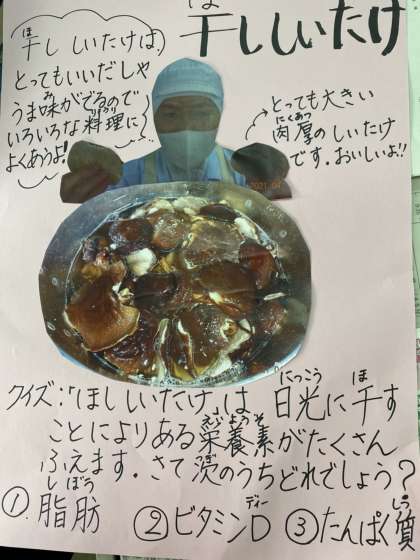 干ししいたけ
ほ
干し しいたけは、
ほ
とってもいいだしや
うま味がでるので
み
いろいろな料理に
りょうり
よくあうよ!!
とっても大きい
肉厚のしいたけ
にくあつ
です。おいしいよ!!
2021.04
クイズ:「ほししいたけ」は 日光に干す
にっこう
ほ
ことによりある栄養素がたくさん
えいようそ
ふえます。さて次のうちどれでしょう?
つぎ
①脂肪 ②ビタミンD ③たんぱく質
しぼう
ディー
しつ